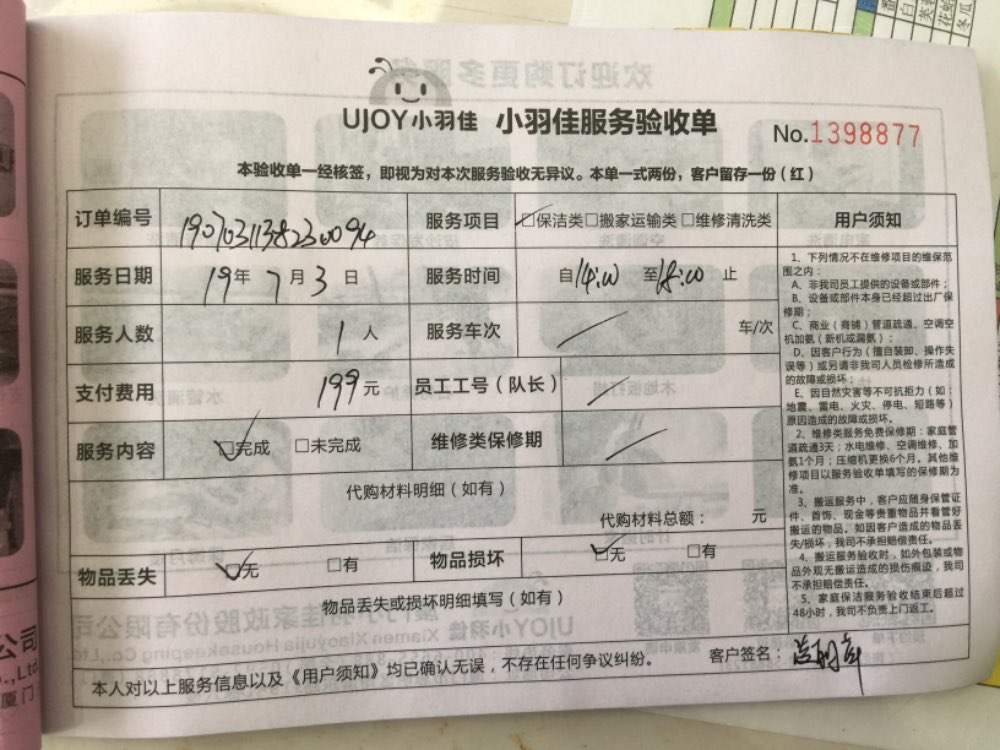 UJOY小羽佳 小羽佳服务验收单
No.1398877
本验收单一经核签，即视为对本次服务验收无异议。本单一式两份，客户留存一份（红）
订单编号 1907031138230094 服务项目 ☑保洁类□搬家运输类 □维修清洗类
服务日期 19年 7月 3日 服务时间 自14:00 至18:00 止
服务人数 1人 服务车次 / 车/次
支付费用 199元 员工工号（队长） /
服务内容 ☑完成 □未完成 维修类保修期 /
代购材料明细（如有）
代购材料总额： 元
物品丢失 ☑无 □有 物品损坏 ☑无 □有
物品丢失或损坏明细填写（如有）
本人对以上服务信息以及《用户须知》均已确认无误，不存在任何争议纠纷。 客户签名：
用户须知
1、下列情况不在维修项目的维保范
围之内：
A、非我司员工提供的设备或部件；
B、设备或部件本身已经超过出厂保
修期；
C、商业（商铺）管道疏通、空调空
机加氨（新机或漏氨）；
D、因客户行为（擅自装卸、操作失
误等）或另请非我司人员检修所造成
的故障或损坏；
E、因自然灾害等不可抗拒力（如：
地震、雷电、火灾、停电、短路等）
原因造成的故障或损坏。
2、维修类服务免费保修期：家庭管
道疏通3天；水电维修、空调维修、加
氨1个月；压缩机更换6个月。其他维
修项目以服务验收单填写的保修期为
准。
3、搬运服务中，客户应随身保管证
件、首饰、现金等贵重物品并看管好
搬运的物品。如因客户造成的物品丢
失/损坏，我司不承担赔偿责任。
4、搬运服务验收时，如外包装或物
品外观无搬运造成的损伤痕迹，我司
不承担赔偿责任。
5、家庭保洁服务验收结束后超过
48小时，我司不负责上门返工。
公司
.,Ltd
厦门